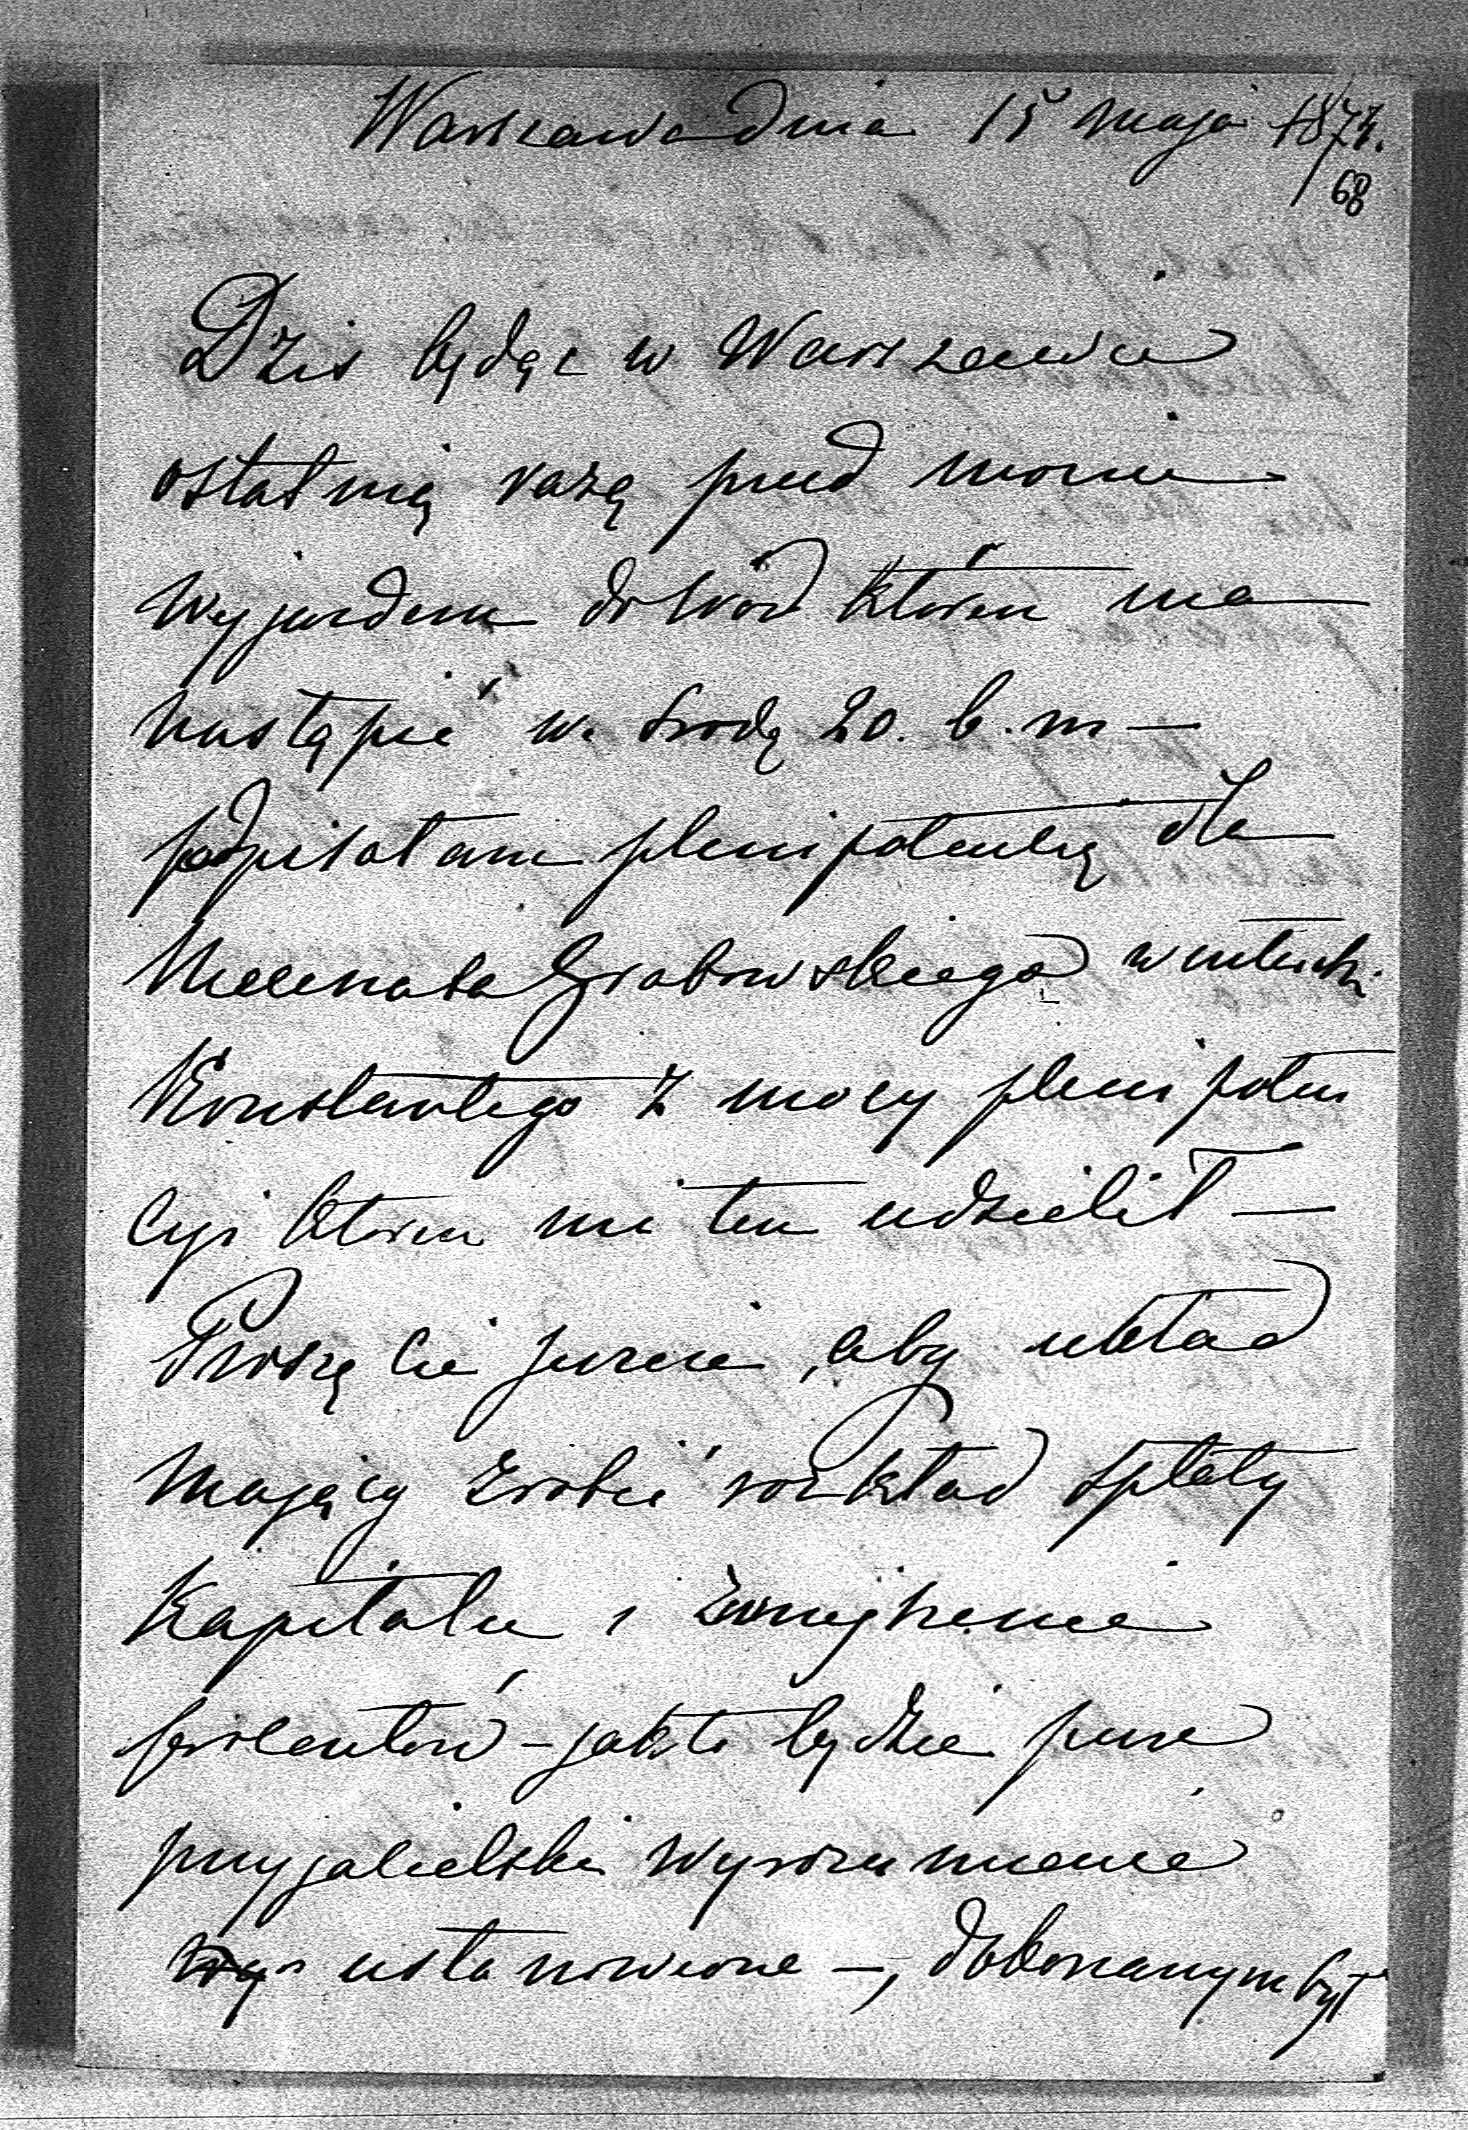 Warszawa dnia 15 maja 1874.
68
Dziś będąc w Warszawie
ostatnią rażą przed moim
wyjazdem do wód które ma
nastąpić w Srodę 20. b. m —
podpisałam plenipotencię dla
Mecenasa Grabowskiego w
Konstantego z mocy plenipoten
cyi które mi ten udzielił —
Proszę Cie jeszcze, aby układ
mający zrobić rozkład spłaty
Kapitału i zmniejszenie
procentów – jak to będzie przez
przyjacielskie wyrozumienie
ustanowione —, dokonanym był